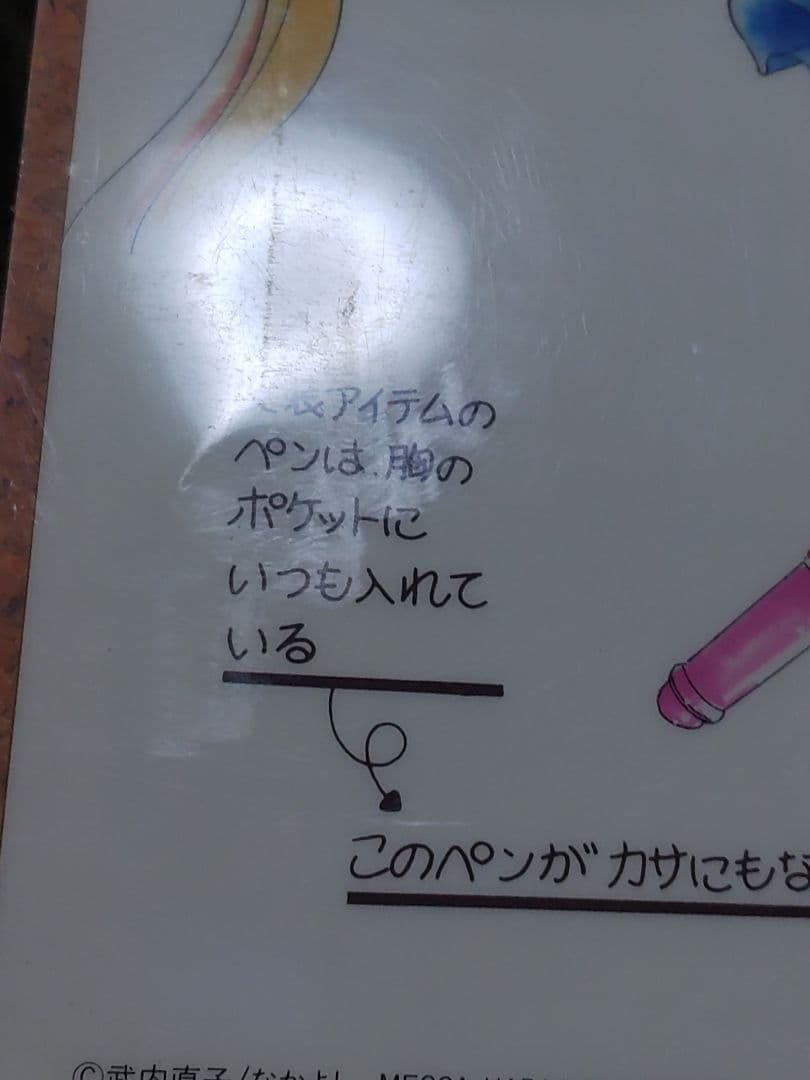 アイテムの
ペンは、胸の
ポケットに
いつも入れて
いる
このペンが カサにもな
©武内直子/なかよし